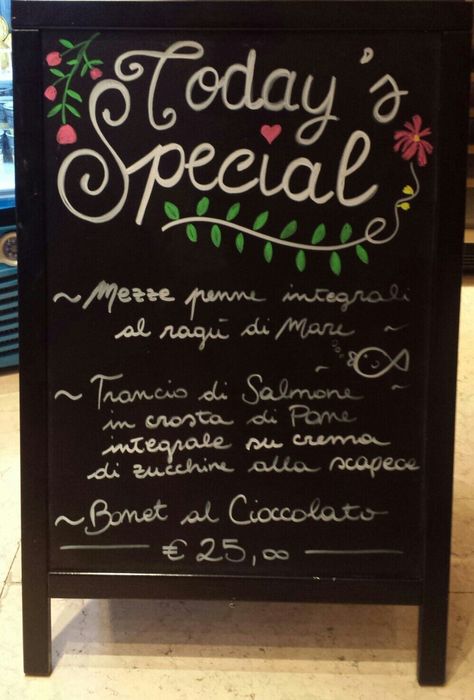 Today's
Special
~ Mezze penne integrali
al ragù di Mare ~
~ Trancio di Salmone ~
in crosta di Pane
integrale su crema
di zucchine alla scapece
~ Bonet al Cioccolato
€ 25,00